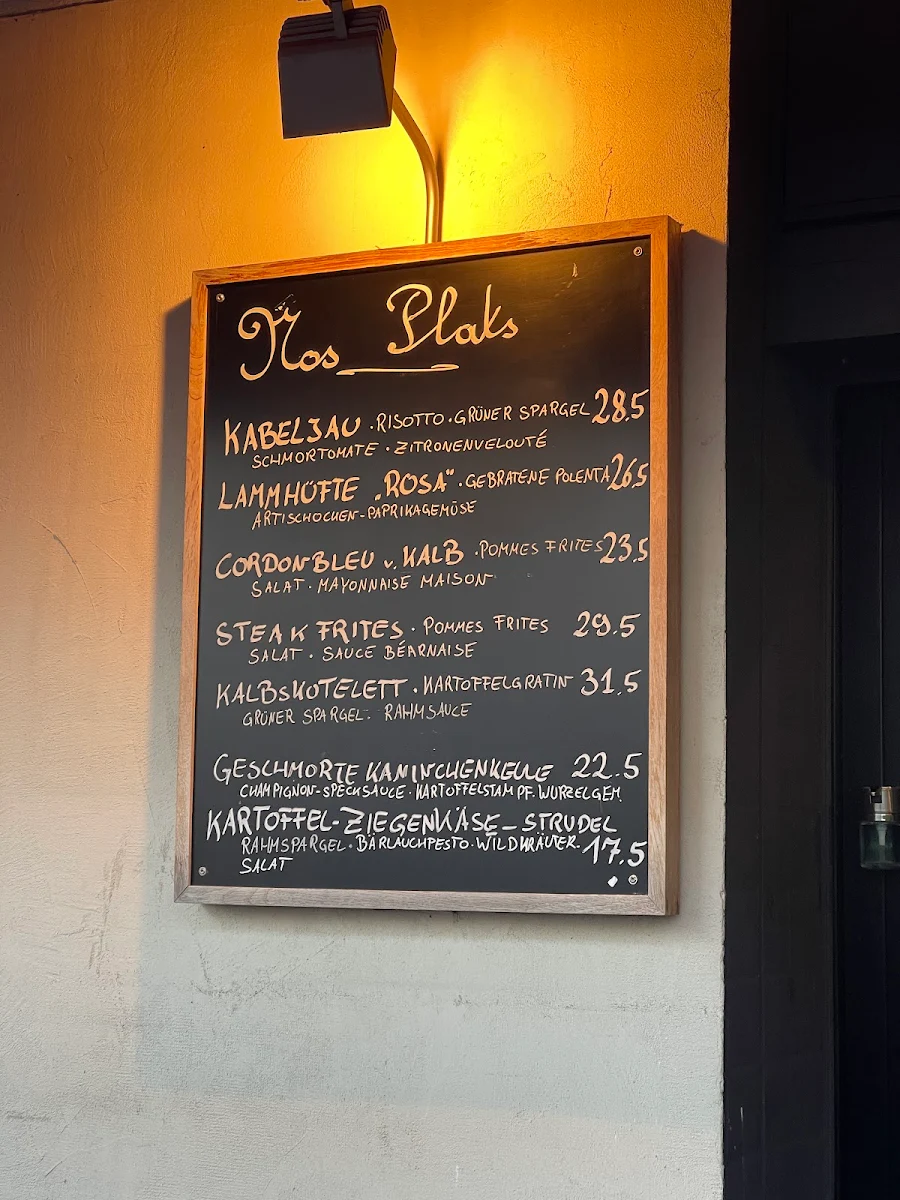 Nos Plats
KABELJAU · RISOTTO · GRÜNER SPARGEL 28.5
SCHMORTOMATE · ZITRONENVELOUTÉ
LAMMHÜFTE „ROSA“ · GEBRATENE POLENTA 26,5
ARTISCHOCKEN-PAPRIKAGEMÜSE
CORDONBLEU v. KALB · POMMES FRITES 23.5
SALAT · MAYONNAISE MAISON
STEAK FRITES · POMMES FRITES 29.5
SALAT · SAUCE BÉARNAISE
KALBSKOTELETT · KARTOFFELGRATIN 31.5
GRÜNER SPARGEL · RAHMSAUCE
GESCHMORTE KANINCHENKEULE 22.5
CHAMPIGNON-SPECKSAUCE · KARTOFFELSTAMPF. WURZELGEM.
KARTOFFEL-ZIEGENKÄSE-STRUDEL
RAHMSPARGEL · BÄRLAUCHPESTO · WILDKRÄUTER- 17.5
SALAT